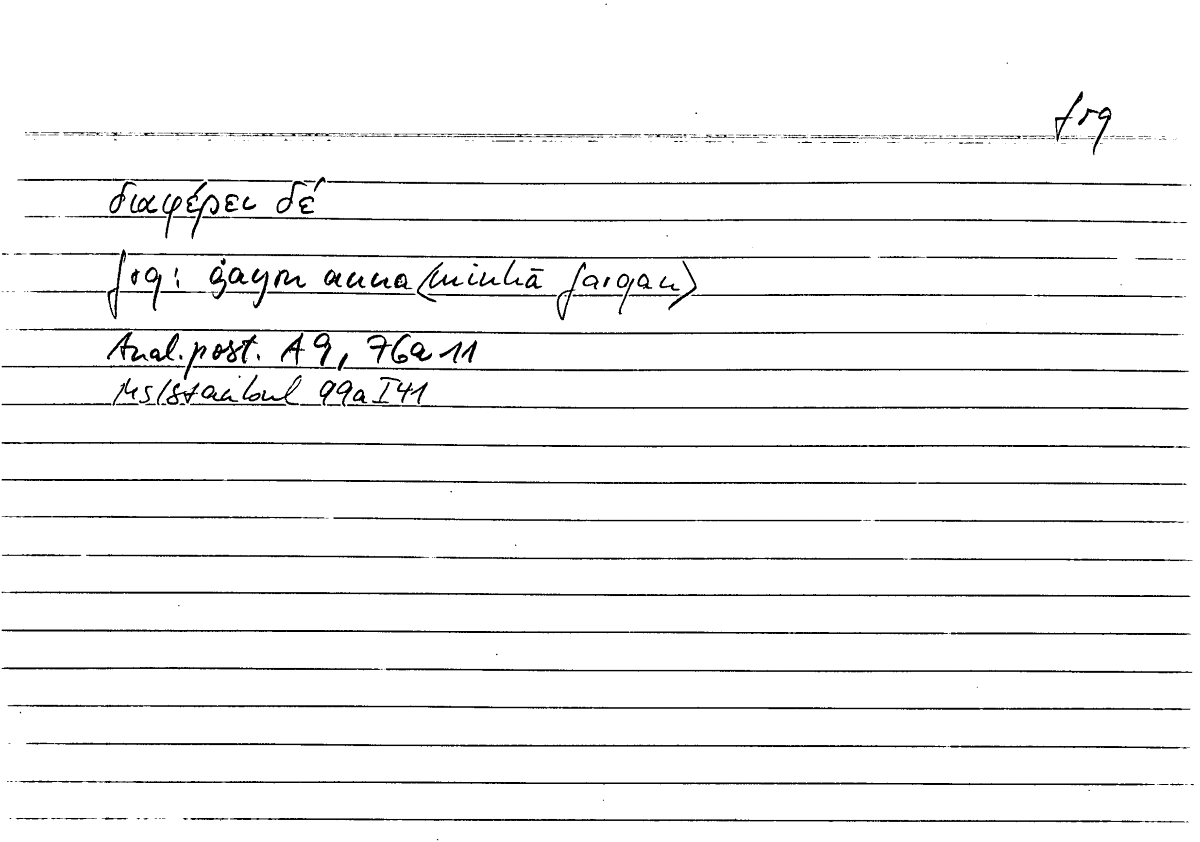 frq
διαφέρει δέ
frq: ġayra anna (minhā farqan)
Anal. post. A 9, 76a 11
Ms Istanbul 99a I 41